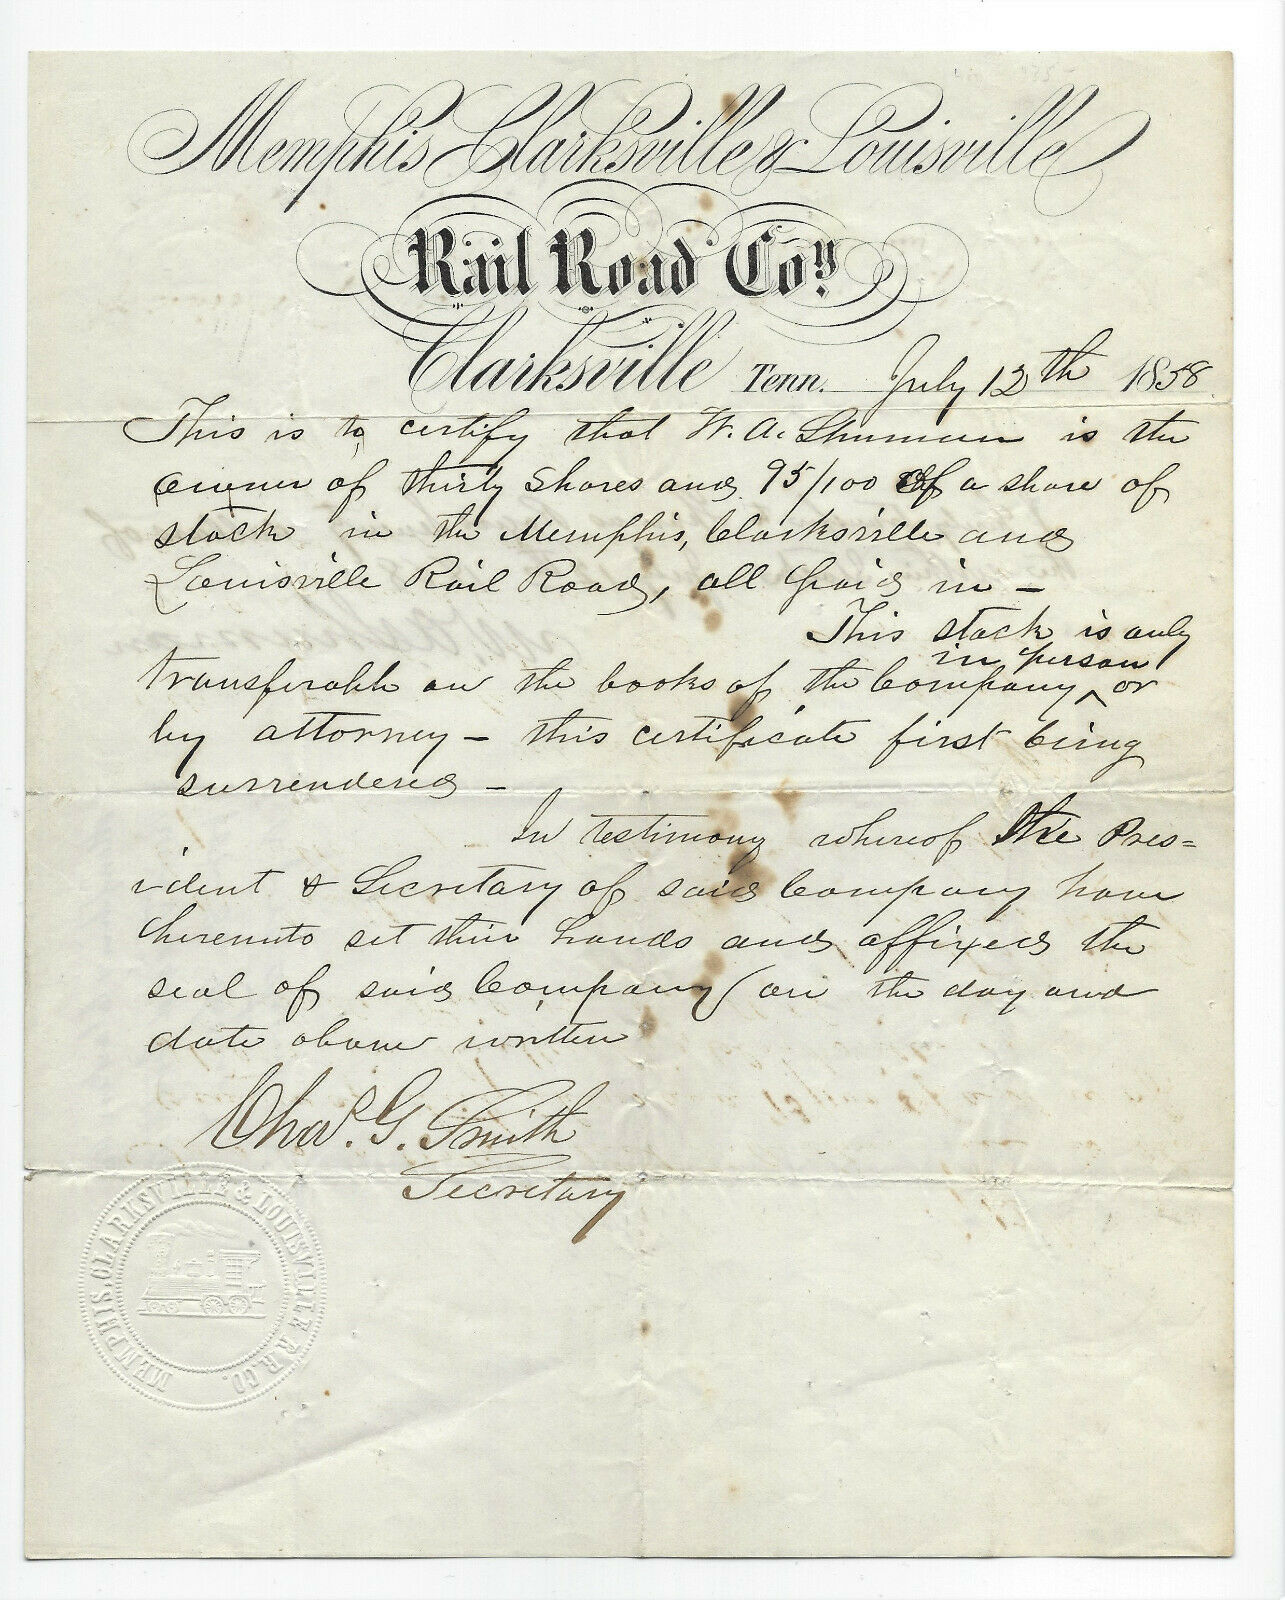 Memphis Clarksville & Louisville
Rail Road Coy.
Clarksville Tenn. July 12th 1858
This is to certify that W. A. is the
owner of thirty shares and 95/100 of a share of
stock in the Memphis, Clarksville and
Louisville Rail Road, all paid in –
This stock is only
in person
transferable on the books of the Company ^ or
by attorney – this certificate first being
surrendered –
In testimony whereof the Pres=
ident & Secretary of said Company have
hereunto set their hands and affixed the
seal of said Company on the day and
date above written
Chas. G. Smith
Secretary
MEMPHIS, CLARKSVILLE & LOUISVILLE R.R. CO.